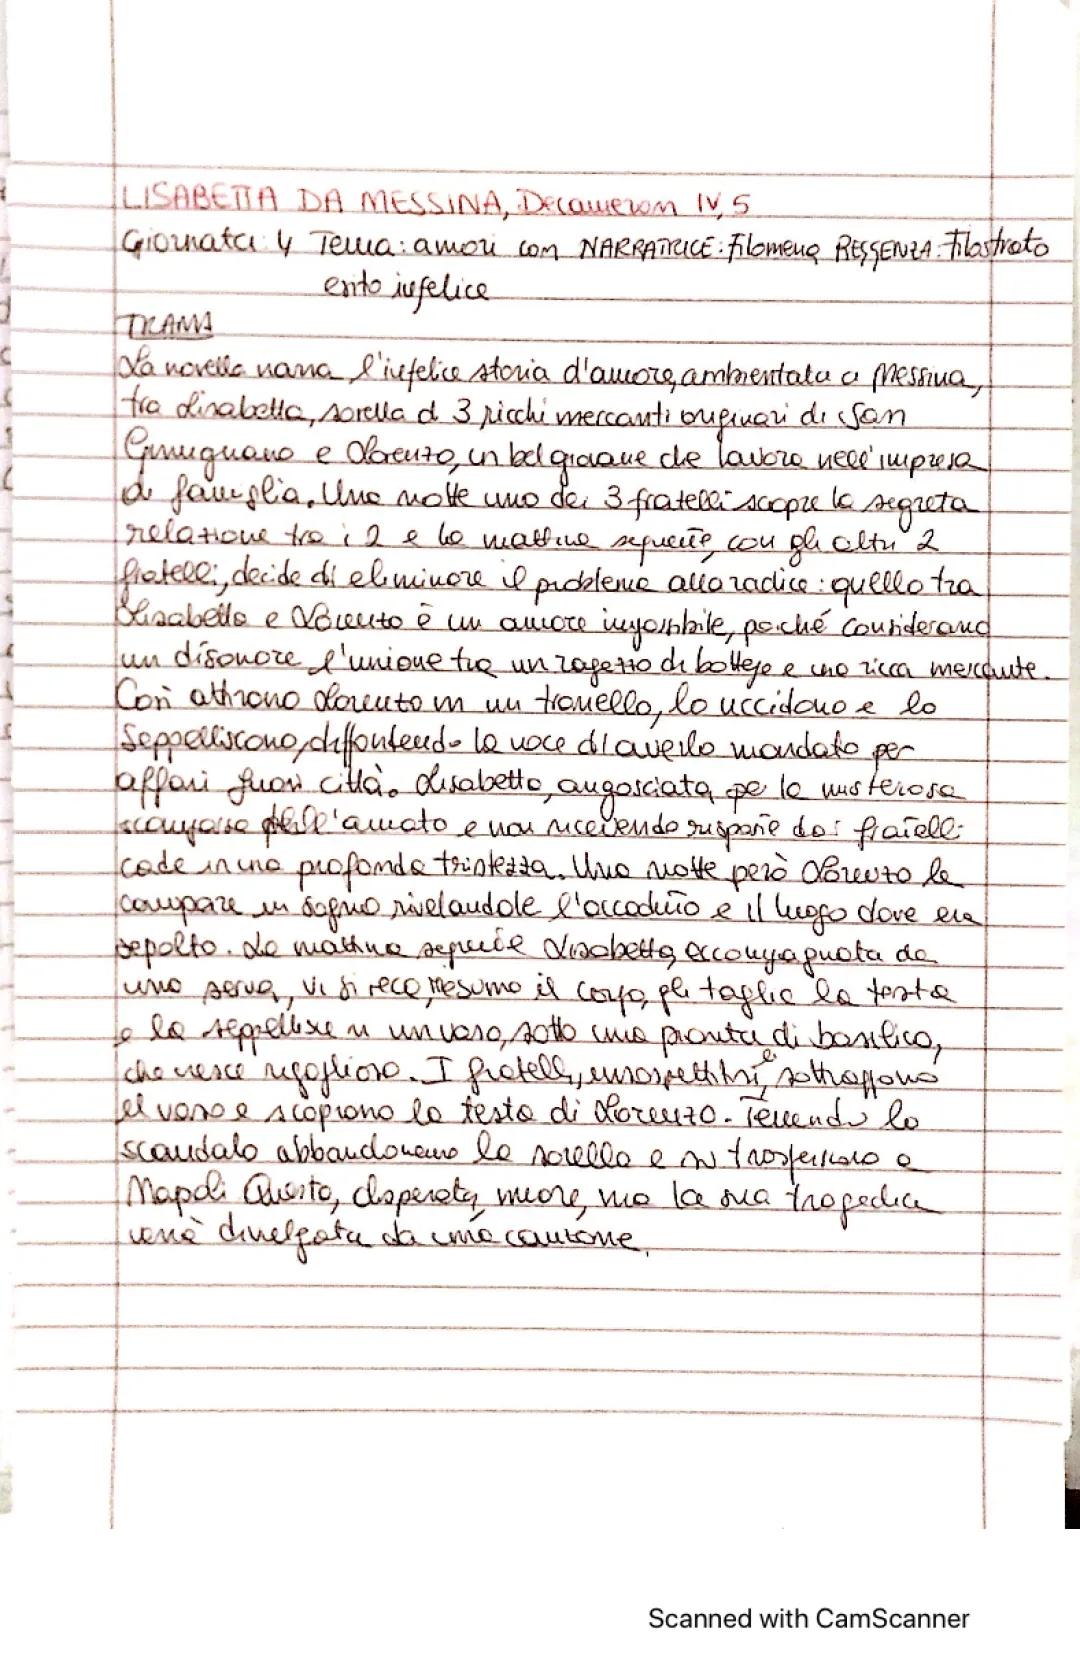 LISABETTA DA MESSINA, Decameron IV, 5
Giornata 4 Tema: amori con NARRATRICE: Filomena REGGENZA: Filostrato
esito infelice
TRAMA
La novella narra l'infelice storia d'amore, ambientata a Messina,
tra Lisabetta, sorella di 3 ricchi mercanti originari di San
Gimignano e Lorenzo, un bel giovane che lavora nell'impresa
di famiglia. Una notte uno dei 3 fratelli scopre la segreta
relazione tra i 2 e la mattina seguente, con gli altri 2
fratelli, decide di eliminare il problema alla radice: quello tra
Lisabetta e Lorenzo è un amore impossibile, poiché considerano
un disonore l'unione tra un ragazzo di bottega e una ricca mercante.
Così attirano Lorenzo in un tranello, lo uccidono e lo
seppelliscono, diffondendo la voce di averlo mandato per
affari fuori città. Lisabetta, angosciata per la misteriosa
scomparsa dell'amato e non ricevendo risposte dai fratelli
cade in una profonda tristezza. Una notte però Lorenzo le
compare in sogno rivelandole l'accaduto e il luogo dove era
sepolto. La mattina seguente Lisabetta, accompagnata da
una serva, vi si reca, riesumo il corpo, gli taglia la testa
e la seppellisce in un vaso, sotto una pianta di basilico,
che cresce rigoglioso. I fratelli, insospettitisi, sottraggono
il vaso e scoprono la testa di Lorenzo. Temendo lo
scandalo abbandonano la sorella e si trasferiscono a
Napoli Questa, disperata, muore, ma la sua tragedia
verrà divulgata da una canzone.
Scanned with CamScanner